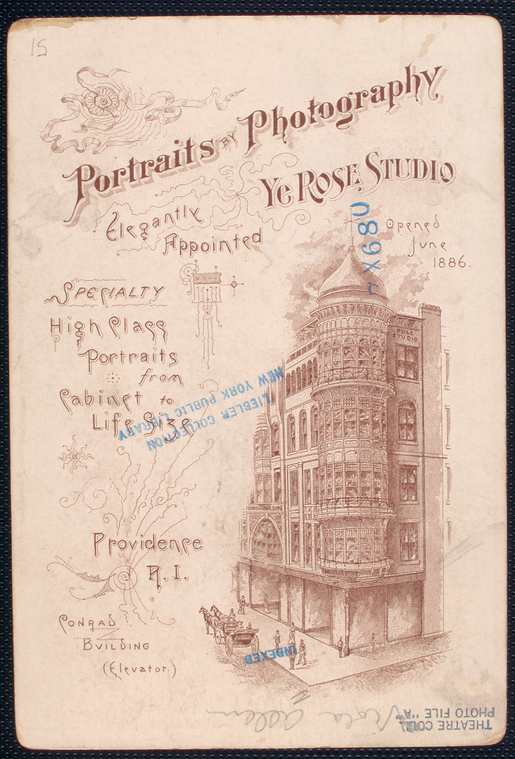 15
Portraits BY Photography
Ye ROSE STUDIO
Elegantly
Appointed
Opened
June
1886.
SPECIALTY
High Class
Portraits
from
Cabinet to
Life Size
Providence
R. I.
CONRAD
BUILDING
(Elevator.)
ROSE
STUDIO
X680
LIEBLER COLLECTION
NEW YORK PUBLIC LIBRARY
INDEXED
Viola Allen
THEATRE COLL.
PHOTO FILE "A"